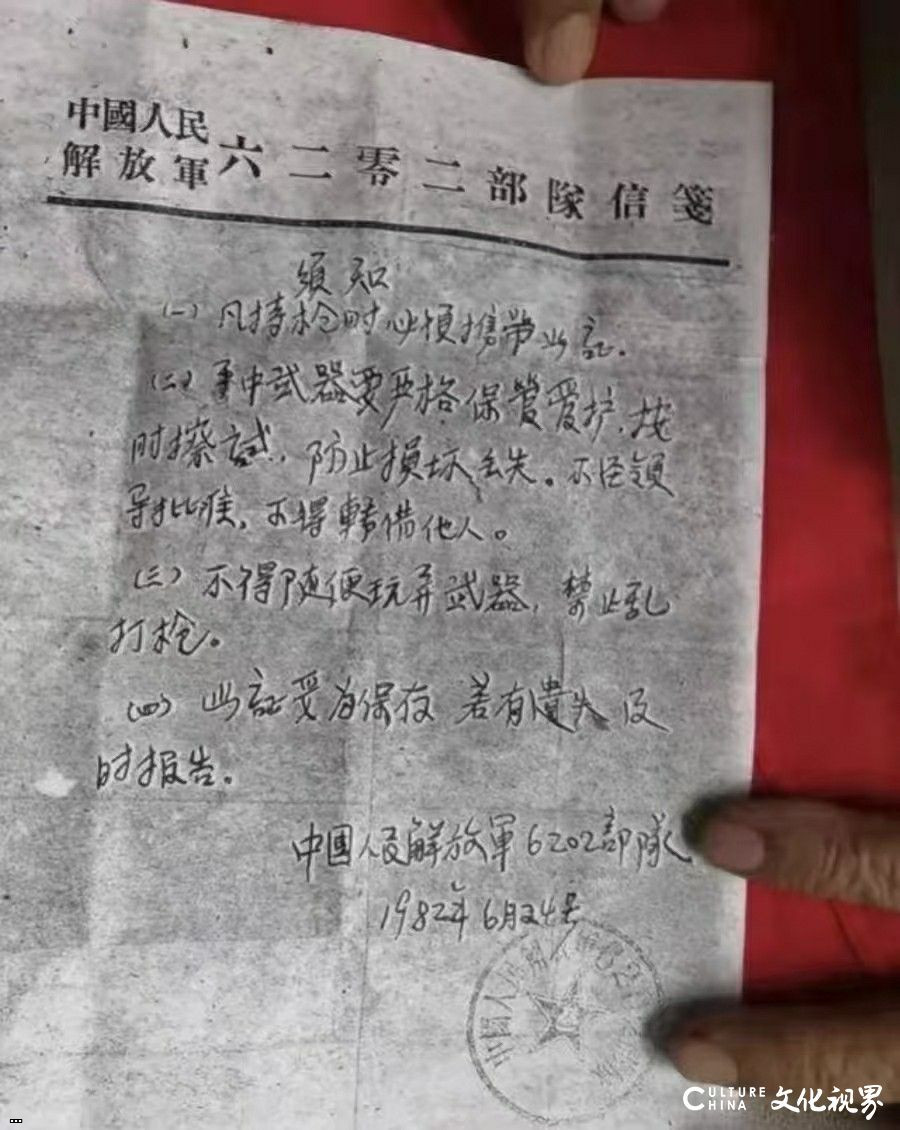 中國人民
解放軍六二零二部隊信箋
须知
(一) 凡持枪时必須携带此証.
(二) 手中武器要严格保管爱护.按
时擦拭.防止損坏丢失。不经領
导批准.不得轉借他人。
(三) 不得随便玩弄武器,禁止乱
打枪。
(四) 此証妥为保存 若有遺失及
时报告。
中国人民解放軍6202部隊
1982年6月24号
CULTURE CHINA 文化视界